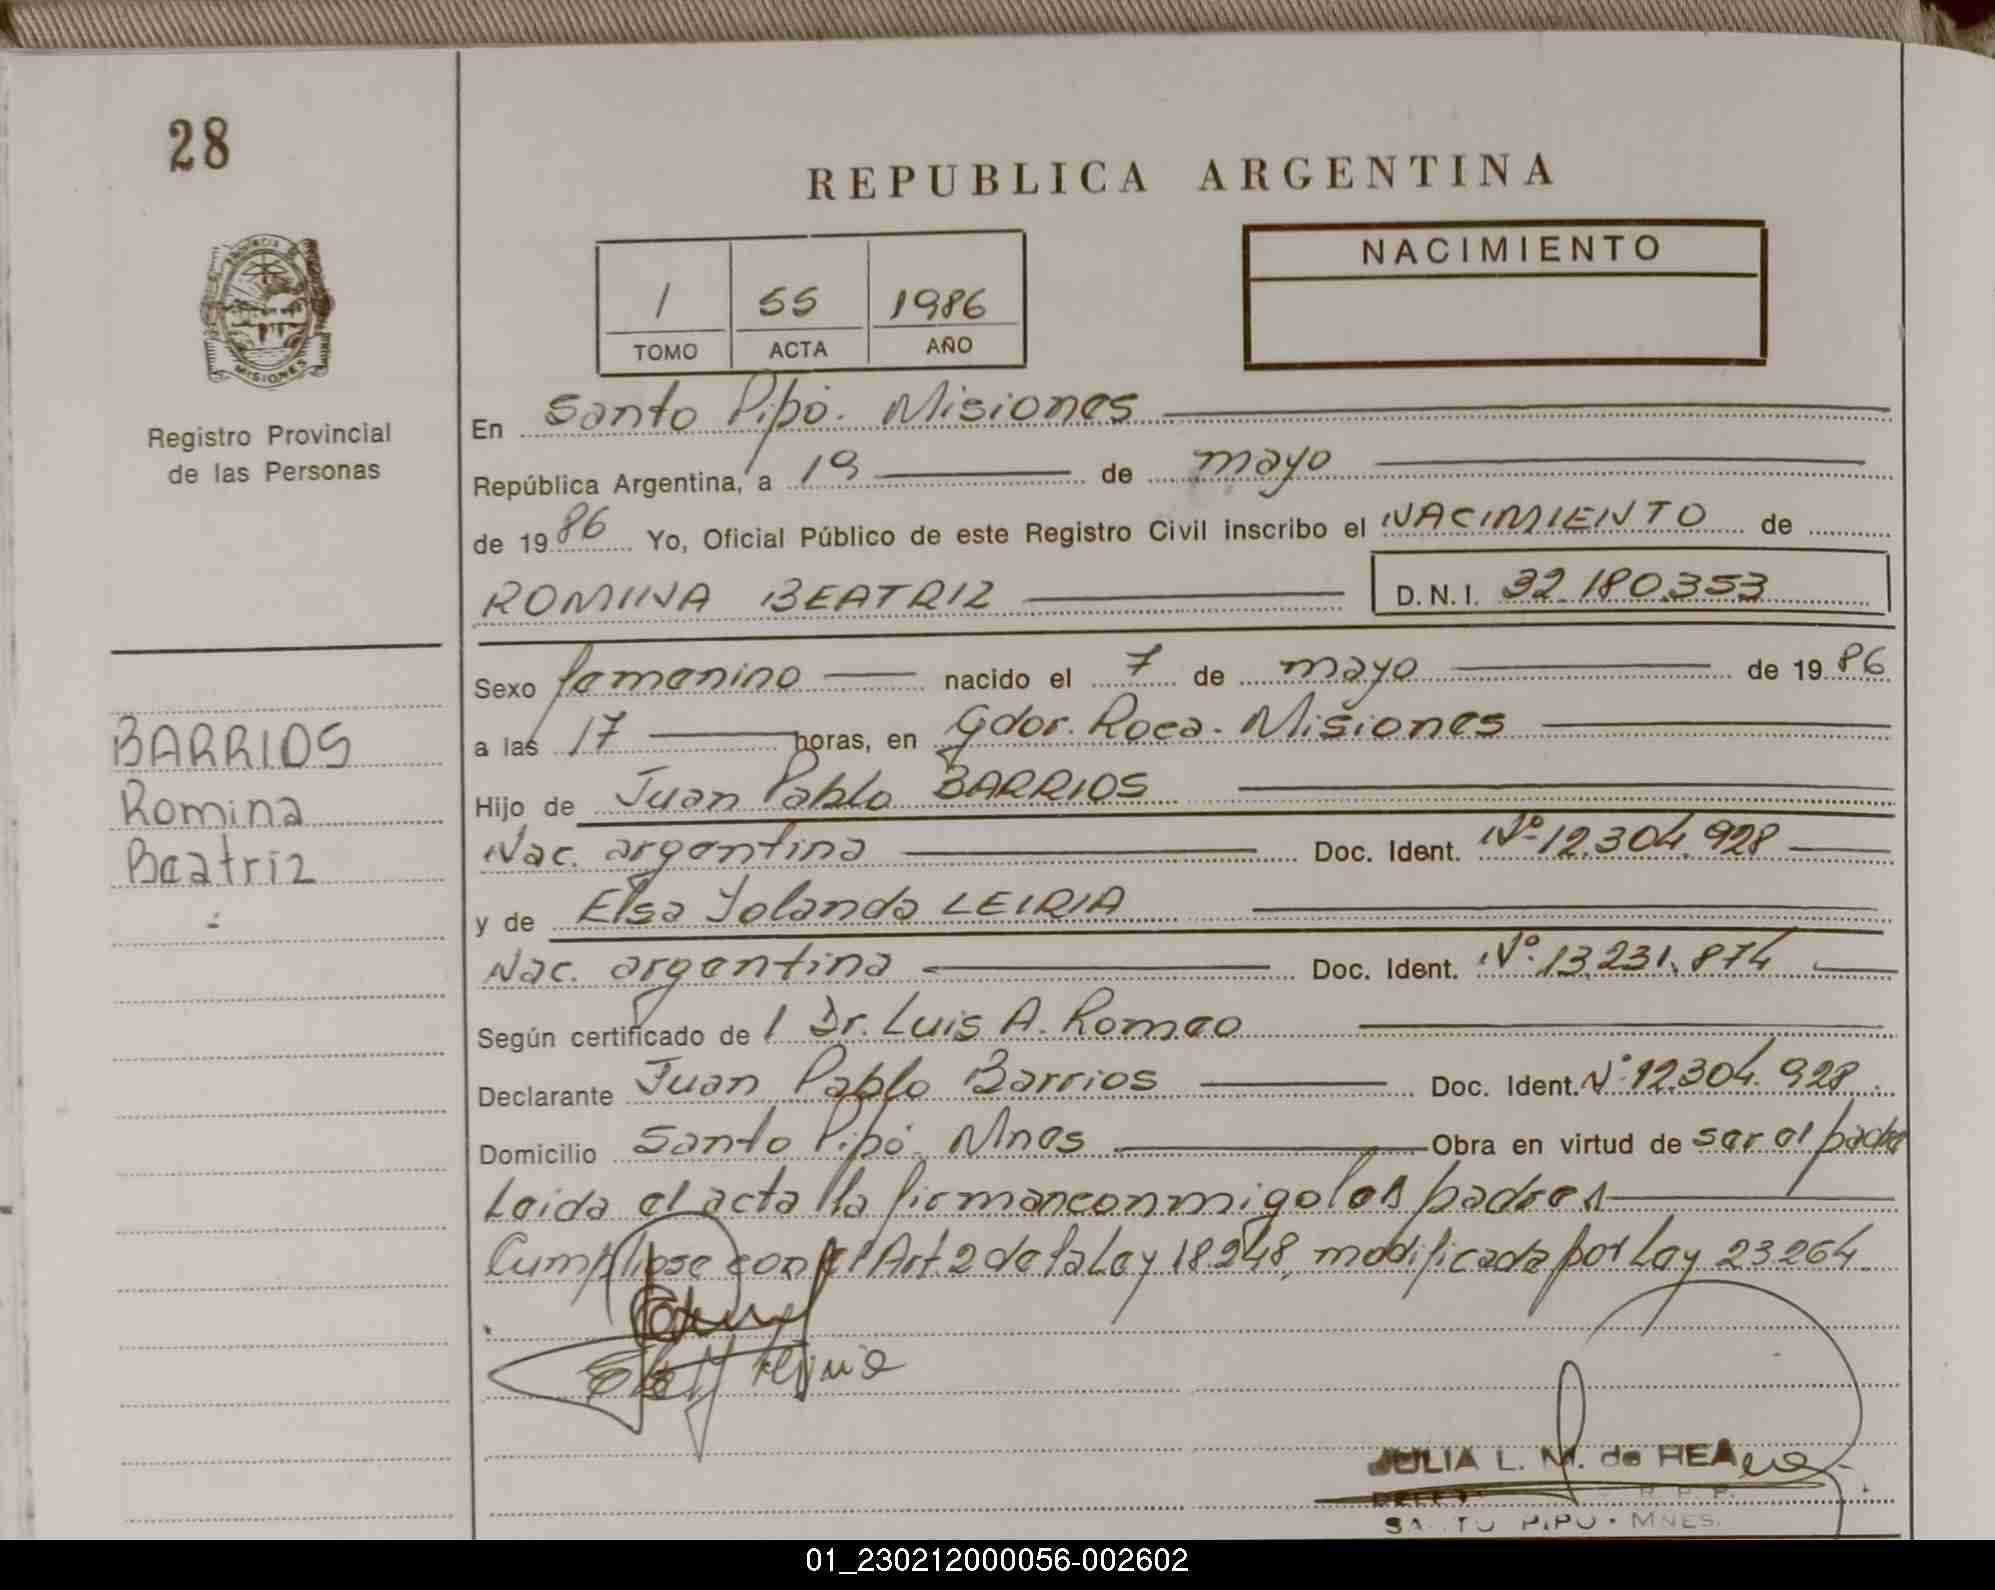 28
REPUBLICA ARGENTINA
PROVINCIA DE
MISIONES
Registro Provincial
de las Personas
1 55 1986
TOMO ACTA AÑO
NACIMIENTO
En Santo Pipó. Misiones
República Argentina, a 19 de mayo
de 1986 Yo, Oficial Público de este Registro Civil inscribo el NACIMIENTO de
ROMINA BEATRIZ D.N.I. 32.180.353
Sexo femenino nacido el 7 de mayo de 1986
a las 17 horas, en Gdor. Roca. Misiones
Hijo de Juan Pablo BARRIOS
Nac. argentina Doc. Ident. Nº 12.304.928
y de Elsa Yolanda LEIRIA
Nac. argentina Doc. Ident. Nº 13.231.874
Según certificado de l Dr. Luis A. Romeo
Declarante Juan Pablo Barrios Doc. Ident. Nº 12.304.928
Domicilio Santo Pipó. Mnes Obra en virtud de ser el padre
Leida el acta la firman conmigo los padres
Cumpliose con el Art. 2 de la Ley 18.248, modificada por Ley 23.264.
BARRIOS
Romina
Beatriz
JULIA L. M. de
R. P. P.
SANTO PIPO - MNES.
01_230212000056-002602